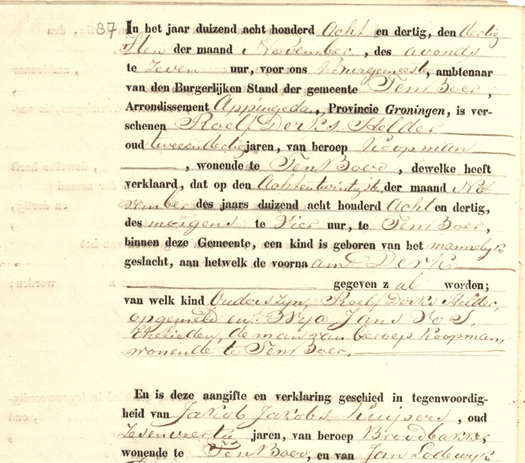 37 In het jaar duizend acht honderd Acht en dertig, den dertig
sten der maand November, des avonds
te Zeven uur, voor ons Burgemeester, ambtenaar
van den Burgerlijken Stand der gemeente Ten Boer,
Arrondissement Appingedam, Provincie Groningen, is ver-
schenen Roelf Derks Helder
oud tweeendertig jaren, van beroep Koopman
, wonende te Ten Boer, dewelke heeft
verklaard, dat op den Achtentwintigste, der maand No
vember des jaars duizend acht honderd Acht en dertig,
des morgens te Vier uur, te Ten Boer,
binnen deze Gemeente, een kind is geboren van het mannelijk
geslacht, aan hetwelk de voornaam Derk
gegeven zal worden;
van welk kind Ouders zijn, Roelf Derks Helder,
opgemeld en Jans
Ehelieden, de man van beroep Koopman,
wonende te Ten Boer.
En is deze aangifte en verklaring geschied in tegenwoordig-
heid van Jakob Jacobs Kuipers, oud
Zevenveertig jaren, van beroep Broodbakker
wonende te Ten Boer, en van Jan Lodewijk